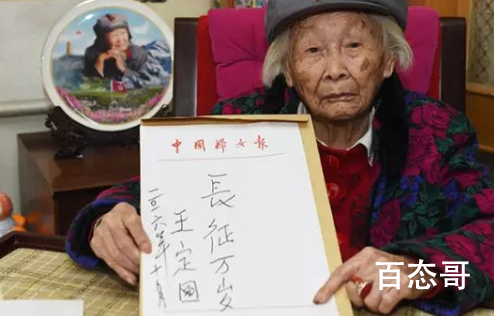 中国妇女报
長征万岁
王定國
二〇一六年十月
百态哥